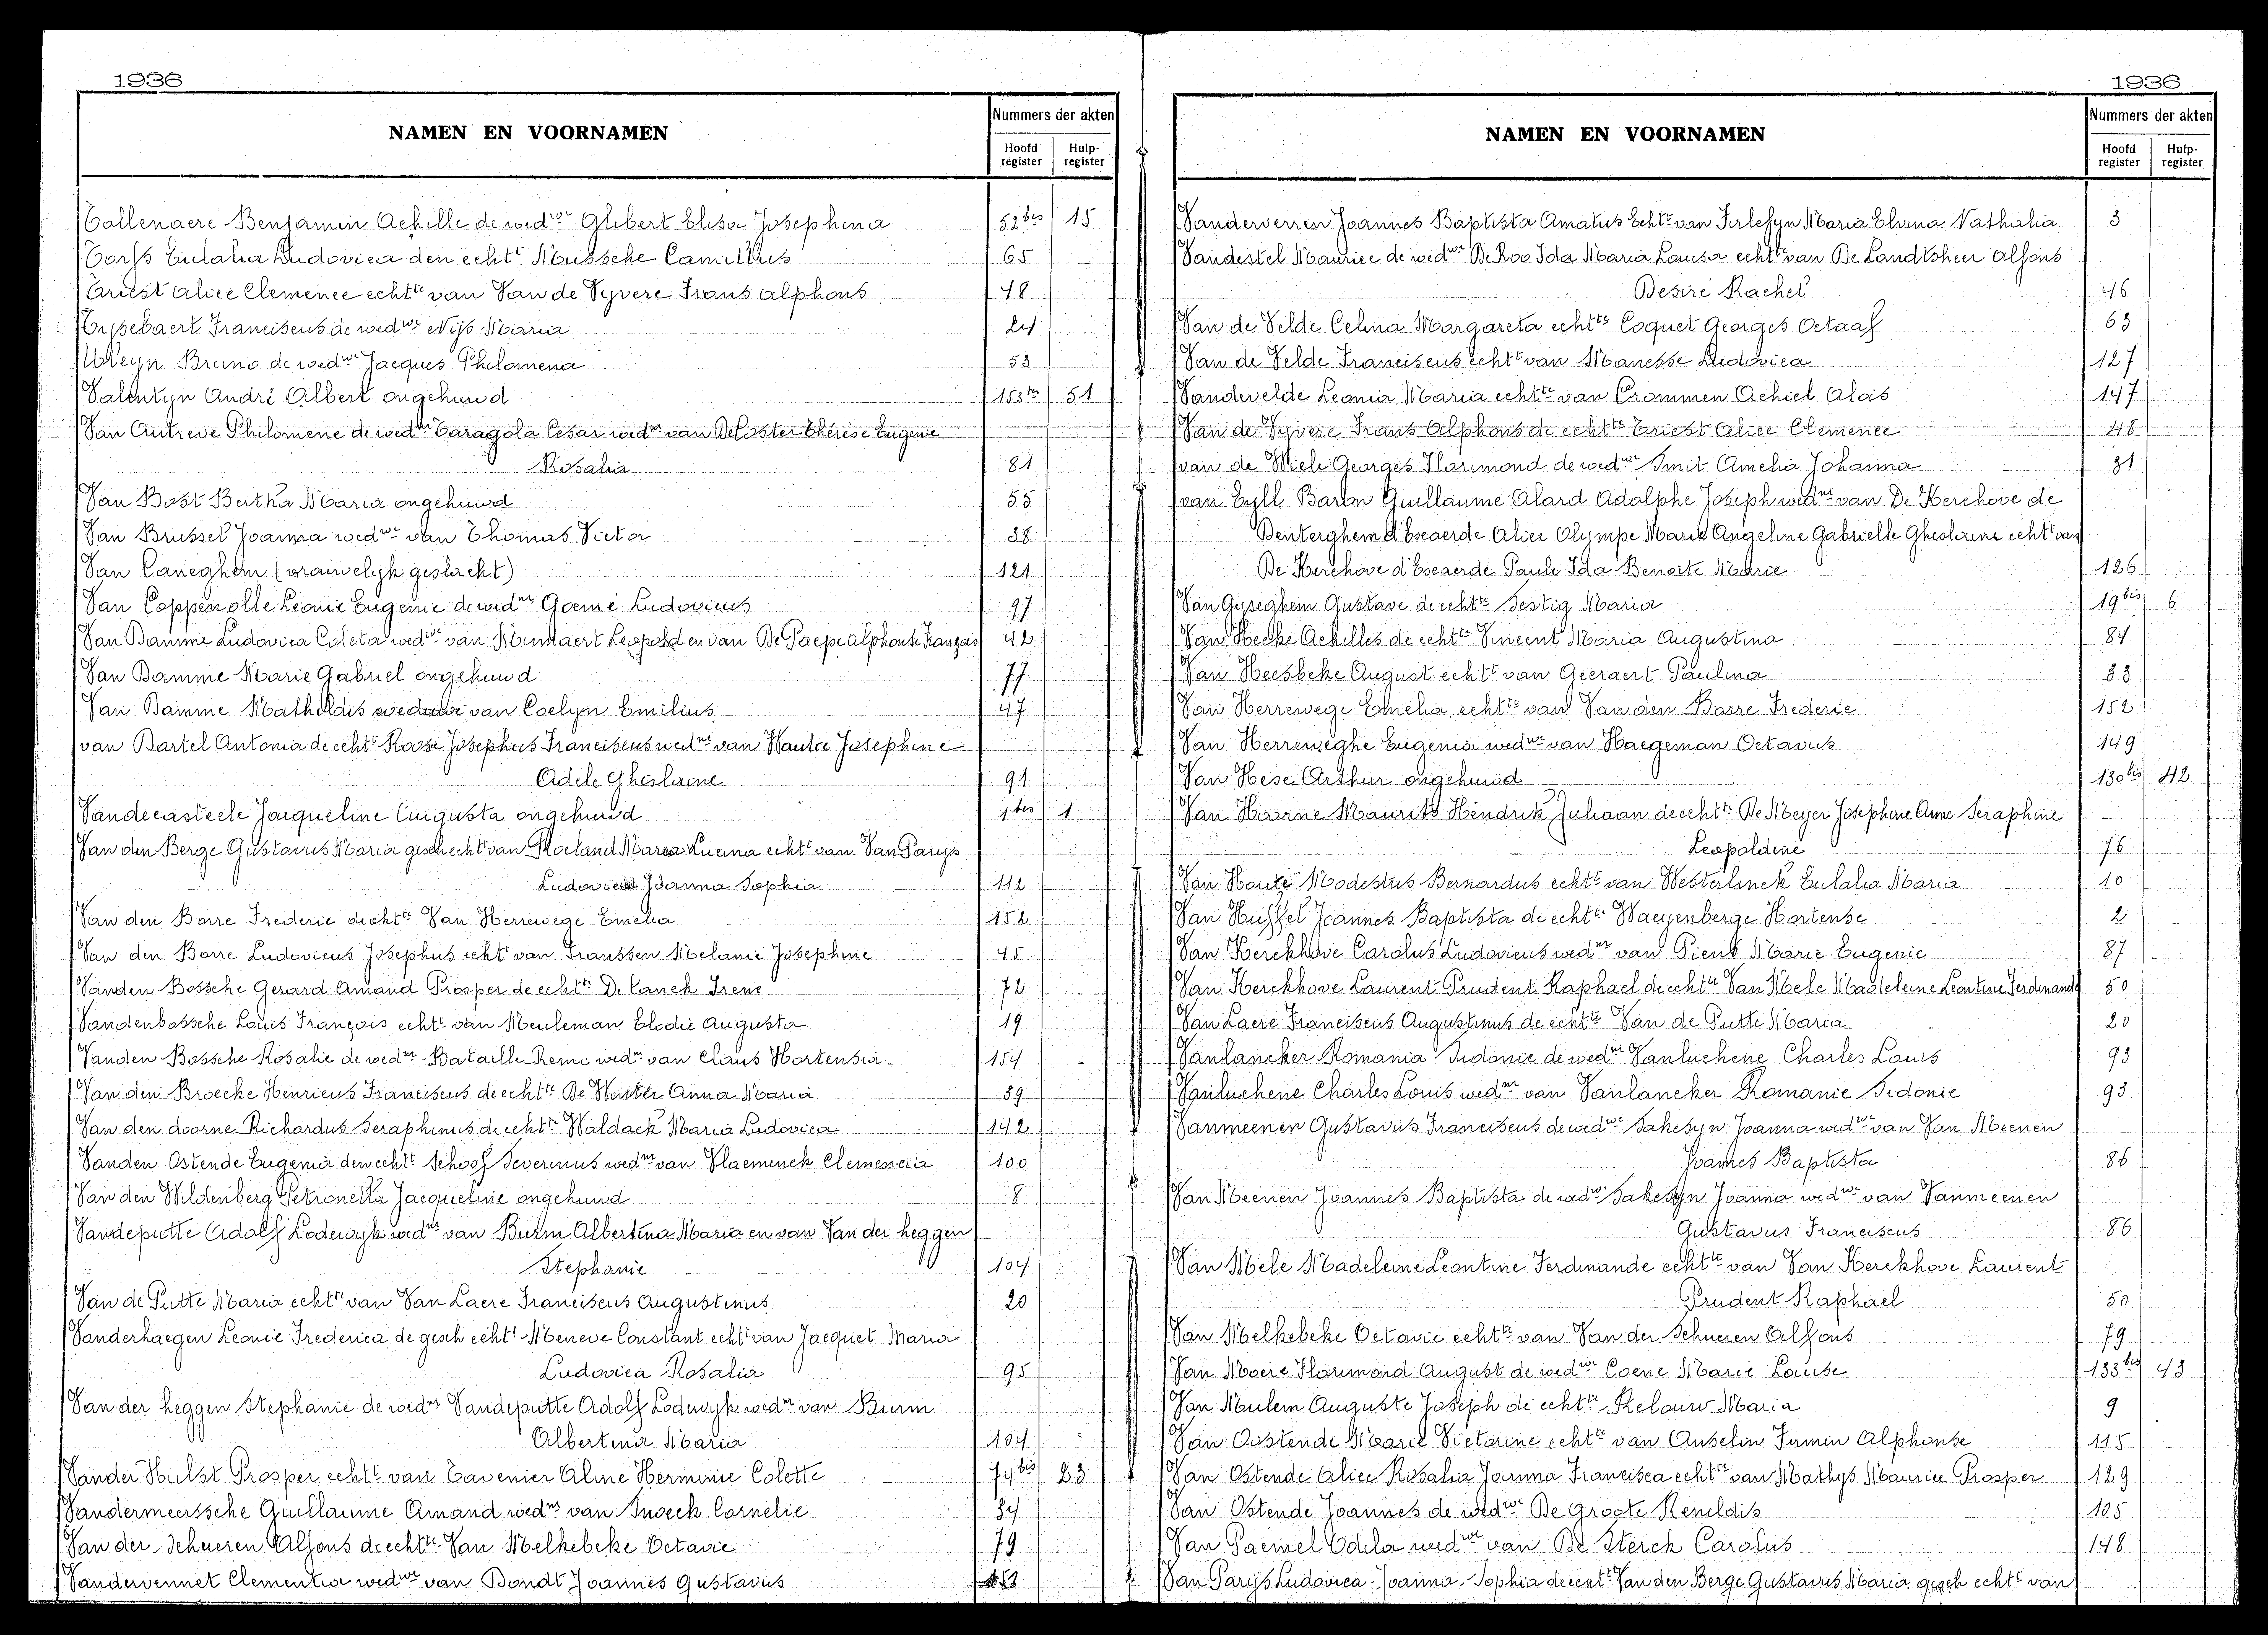 1936
NAMEN EN VOORNAMEN
Nummers der akten
Hoofd register
Hulp- register
Tallenaere Benjamin Achille de wed^we Glibert Elisa Josephina 52^bis 15
Torfs Eulalia Ludovica den echt^t Mussche Camillus 65
Triest Alice Clemence echt^te van Van de Vyvere Frans Alphons 48
Trysebaert Franciscus de wed^we Nijs Maria 24
Uleyn Bruno de wed^we Jacques Philomena 53
Valentyn André Albert ongehuwd 153^bis 51
Van Autreve Philomene de wed^nr Taragola Cesar wed^nr van De Coster Thérèse Eugenie
Rosalia 81
Van Bost Bertha Maria ongehuwd 55
Van Brussel Joanna wed^we van Thomas Victor 38
Van Caneghem (vrouwelijk geslacht) 121
Van Coppenolle Leonie Eugenie de wed^nr Goemé Ludovicus 97
Van Damme Ludovica Coleta wed^we van Minnaert Leopold en van De Paepe Alphonse François 42
Van Damme Marie Gabriel ongehuwd 77
Van Damme Mathildis weduwe van Coelyn Emilius 47
van Dartel Antonia de echt^t Raose Josephus Franciscus wed^nr van Hautce Josephine
Adele Ghislaine 91
Vandecasteele Jacqueline Augusta ongehuwd 1^bis 1
Van den Berge Gustavus Maria gesch echt^t van Roeland Maria Lucina echt^t van Van Parys
Ludovica Joanna Sophia 112
Van den Borre Frederic de echt^te Van Herrewege Emelia 152
Van den Borre Ludovicus Josephus echt^t van Franssen Melanie Josephine 45
Vanden Bossche Gerard Amand Prosper de echt^te De Canck Irene 72
Vandenbossche Louis François echt^t van Meuleman Elodie Augusta 19
Vanden Bossche Rosalie de wed^nr Bataille Remi wed^nr van Claus Hortensia 154
Van den Broecke Henricus Franciscus de echt^te De Winter Anna Maria 39
Van den doorne Richardus Seraphinus de echt^te Waldack Maria Ludovica 142
Vanden Ostende Eugenia den echt^t Schoof Severinus wed^nr van Vlaeminck Clemencia 100
Van den Wildenberg Petronella Jacqueline ongehuwd 8
Vandeputte Adolf Lodewyk wed^nr van Burm Albertina Maria en van Van der heggen
Stephanie 104
Van de Putte Maria echt^te van Van Laere Franciscus Augustinus 20
Vanderhaegen Leonie Frederica de gesch echt^t Meneve Constant echt^t van Jacquet Maria
Ludovica Rosalia 95
Van der heggen Stephanie de wed^nr Vandeputte Adolf Lodewyk wed^nr van Burm
Albertina Maria 104
Vander Hulst Prosper echt^t van Tavenier Aline Hermine Colette 74^bis 23
Vandermeerssche Guillaume Amand wed^nr van Inveck Cornélie 34
Van der Schueren Alfons de echt^te Van Melkebeke Octavie 79
Vandervennet Clementia wed^we van Bondt Joannes Gustavus 153
1936
NAMEN EN VOORNAMEN
Nummers der akten
Hoofd register
Hulp- register
Vanderverren Joannes Baptista Amatus Echt^t van Firlefyn Maria Elvina Nathalia 3
Vandestel Maurice de wed^we De Roo Ida Maria Louisa echt^t van De Landtsheer Alfons
Desiré Rachel 46
Van de Velde Celina Margareta echt^te Coquet Georges Octaaf 63
Van de Velde Franciscus echt^t van Manesse Ludovica 127
Vandevelde Leonia Maria echt^te van Crommen Achiel Alois 147
Van de Vyvere Frans Alphons de echt^te Triest Alice Clemence 48
van de Wiele Georges Florimond de wed^we Smit Amelia Johanna 31
van Eyll Baron Guillaume Alard Adolphe Joseph wed^nr van De Kerchove de
Denterghem d'Exaerde Alice Olympe Marie Angeline Gabrielle Ghislaine echt^t van
De Kerchove d'Exaerde Paule Ida Benoite Marie 126
Van Gyseghem Gustave de echt^te Sestig Maria 19^bis 6
Van Hecke Achilles de echt^te Vincent Maria Augustina 84
Van Heesbeke August echt^t van Geeraert Paulina 33
Van Herrewege Emelia echt^te van Van den Borre Frederic 152
Van Herreweghe Eugenia wed^we van Haegeman Octavus 149
Van Hese Arthur ongehuwd 130^bis 42
Van Hoorne Maurits Hendrik Juliaan de echt^te De Meyer Josephine Anne Seraphine
Leopoldine 76
Van Houte Modestus Bernardus echt^t van Westerlinck Eulalia Maria 10
Van Huffel Joannes Baptista de echt^te Waeyenberge Hortense 2
Van Kerckhove Carolus Ludovicus wed^nr van Piens Marie Eugenie 87
Van Kerckhove Laurent Prudent Raphael de echt^te Van Mele Madeleine Léontine Ferdinande 50
Van Laere Franciscus Augustinus de echt^te Van de Putte Maria 20
Vanlancker Romania Sidonie de wed^nr Vanluchene Charles Louis 93
Vanluchene Charles Louis wed^nr van Vanlancker Romanie Sidonie 93
Vanmeenen Gustavus Franciscus de wed^we Sakesyn Joanna wed^we van Van Meenen
Joannes Baptista 86
Van Meenen Joannes Baptista de wed^we Sakesyn Joanna wed^we van Vanmeenen
Gustavus Franciscus 86
Van Mele Madeleine Leontine Ferdinande echt^te van Van Kerckhove Laurent
Prudent Raphael 50
Van Melkebeke Octavie echt^te van Van der Schueren Alfons 79
Van Moere Florimond August de wed^we Coene Marie Louise 133^bis 43
Van Mulem Auguste Joseph de echt^te Relouw Maria 9
Van Oostende Marie Victorine echt^te van Anselin Firmin Alphonse 115
Van Ostende Alice Rosalia Joanna Francisca echt^te van Mathys Maurice Prosper 129
Van Ostende Joannes de wed^we De Groote Renildis 105
Van Paemel Odila wed^we van De Sterck Carolus 148
Van Parijs Ludovica Joanna Sophia de echt^t Van den Berge Gustavus Maria gesch echt^t van